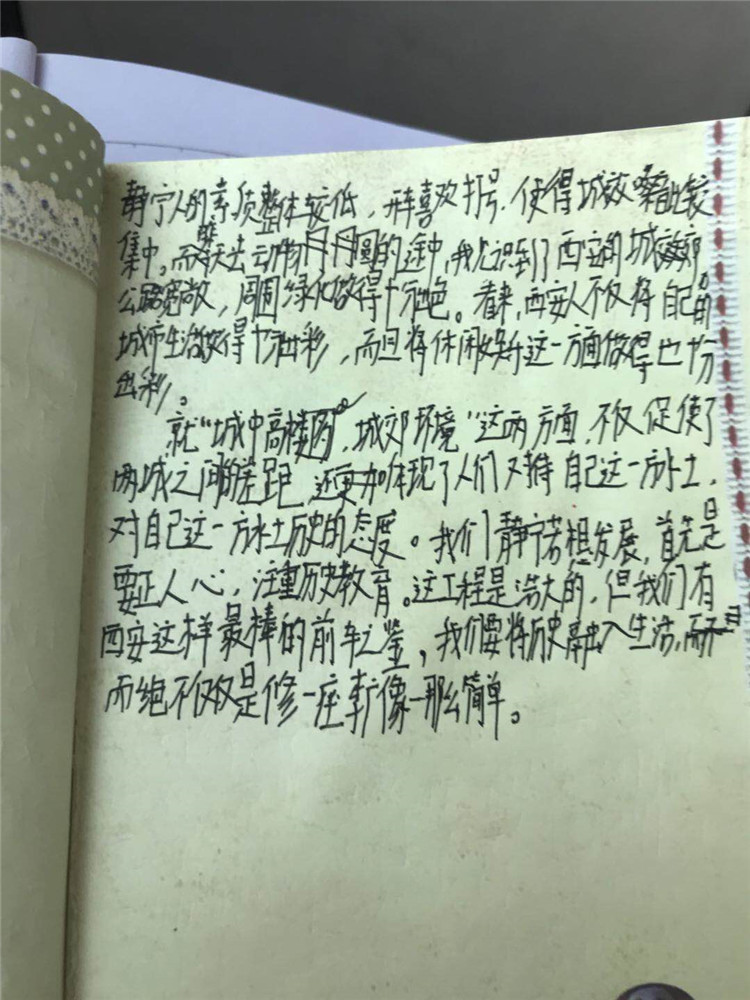 静宁人的素质整体较低，开车喜欢打号，使得城效噪音比较
集中。而昨天去动物园的途中，我认识到了西安的城郊
公路宽敞，周围绿化做得十分出色。看来，西安人不仅将自己的
城市生活做得十分出彩，而且将休闲娱乐这一方面做得也十分
出彩。
就“城中高楼，城郊环境”这两方面，不仅促使了
两城之间的差距，还更加体现了人们对待自己这一方水土，
对自己这一方水土历史的态度。我们静宁若想发展，首先是
要正人心，注重历史教育。这工程是浩大的，但我们有
西安这样最棒的前车之鉴，我们要将历史融入生活，
而绝不仅仅是修一座新像一那么简单。